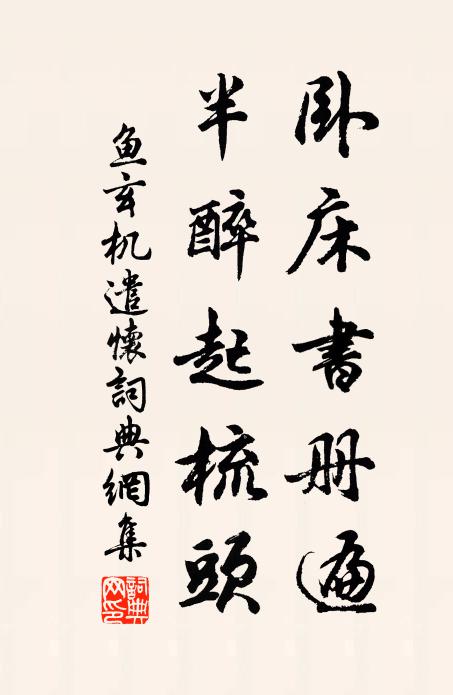 卧床書册遍
半醉起梳頭
鱼玄机遣懷詞典網集
詞典
网印